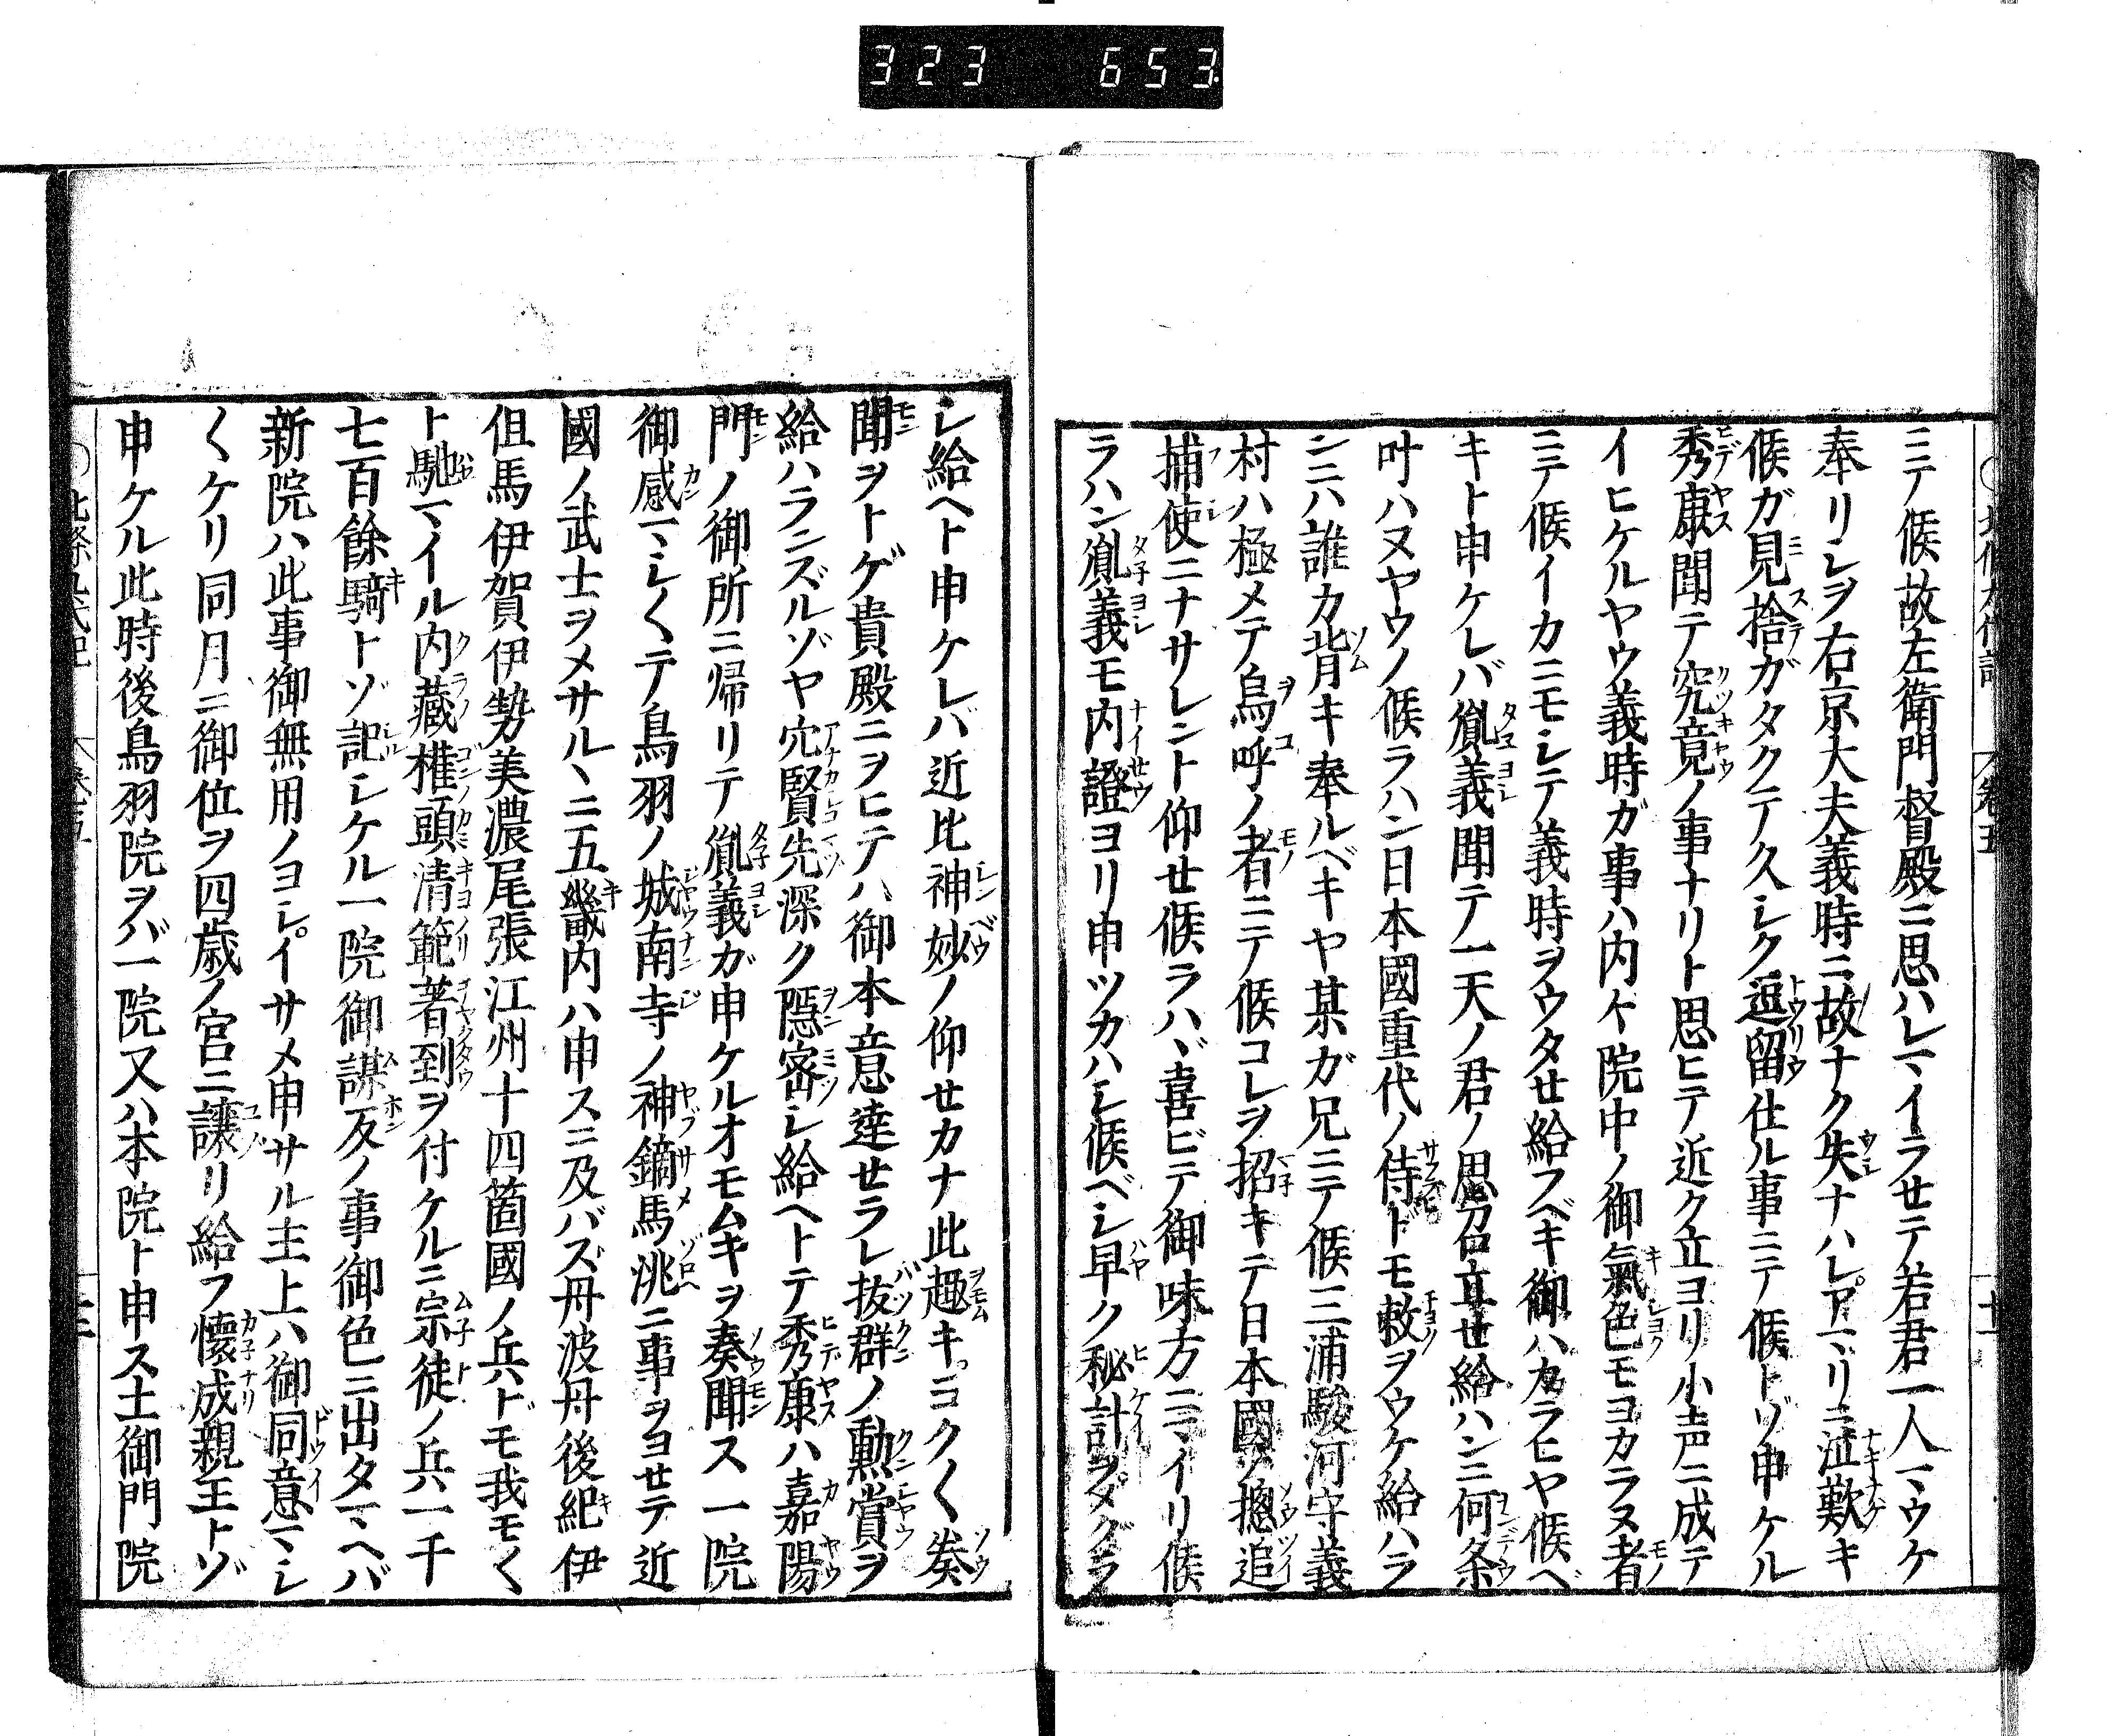 323 653
ニテ候故左衛門督殿ニ思ハレマイラせテ若君一人マウケ
奉リシヲ右京大夫義時ニ故ナク失ナハレアマリニ泣歎キ
候ガ見捨ガタクテ久シク逗留仕ル事ニテ候トゾ申ケル
秀康聞テ究竟ノ事ナリト思ヒテ近ク立ヨリ小声ニ成テ
イヒケルヤウ義時ガ事ハ内〻院中ノ御氣色モヨカラヌ者
ニテ候イカニモシテ義時ヲウタせ給フベキ御ハカラヒヤ候ベ
キト申ケレバ胤義聞テ一天ノ君ノ思召立せ給ハンニ何条
叶ハヌヤウノ候ラハン日本國重代ノ侍ドモ敕ヲウケ給ハラ
ンニハ誰カ背キ奉ルベキヤ某ガ兄ニテ候三浦駿河守義
村ハ極メテ烏呼ノ者ニテ候コレヲ招キテ日本國ノ摠追
捕使ニナサレント仰せ候ラハヾ喜ビテ御味方ニマイリ候
ラハン胤義モ内證ヨリ申ツカハシ候ベシ早ク秘計ヲメグラ
シ給ヘト申ケレバ近比神妙ノ仰せカナ此趣キヨク〱奏
聞ヲトゲ貴殿ニヲヒテハ御本意達せラレ抜群ノ勲賞ヲ
給ハランズルゾヤ穴賢先深ク隱密シ給ヘトテ秀康ハ嘉陽
門ノ御所ニ帰リテ胤義ガ申ケルオモムキヲ奏聞ス一院
御感マシ〱テ鳥羽ノ城南寺ノ神鏑馬洮ニ事ヲヨせテ近
國ノ武士ヲメサルヽニ五畿内ハ申スニ及バズ丹波丹後紀伊
但馬伊賀伊勢美濃尾張江州十四箇國ノ兵ドモ我モ〱
ト馳マイル内藏權頭清範著到ヲ付ケルニ宗徒ノ兵一千
七百餘騎トゾ記シケル一院御謀反ノ事御色ニ出タマヘバ
新院ハ此事御無用ノヨシイサメ申サル主上ハ御同意マシ
〱ケリ同月ニ御位ヲ四歳ノ宮ニ讓リ給フ懐成親王トゾ
申ケル此時後鳥羽院ヲバ一院又ハ本院ト申ス土御門院